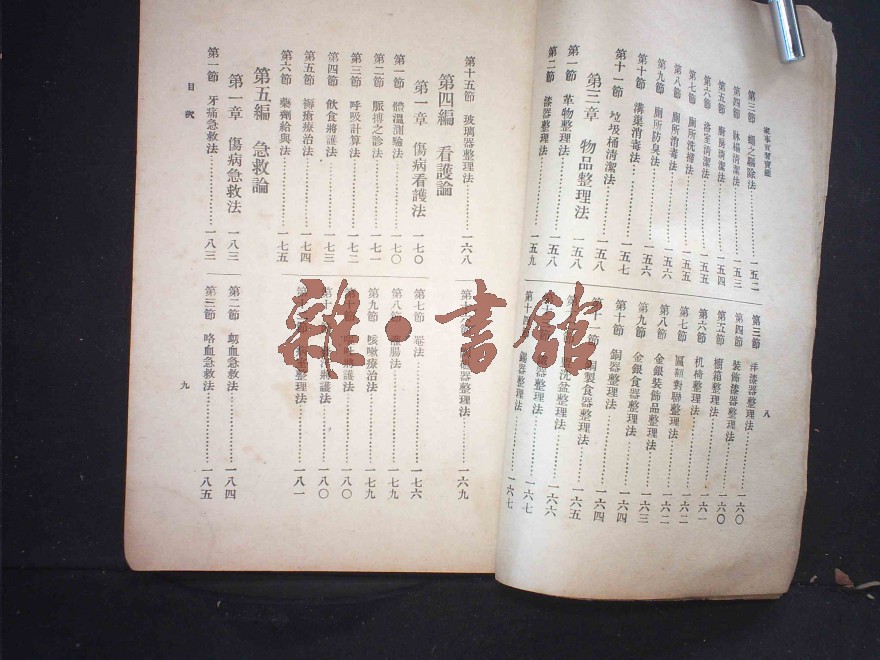 家事實習寶鑑
第三節 蠅之驅除法 一五二
第四節 牀榻清潔法 一五三
第五節 廚房清潔法 一五四
第六節 浴室清潔法 一五五
第七節 廁所洗掃法 一五五
第八節 廁所消毒法 一五五
第九節 廁所防臭法 一五六
第十節 溝渠消毒法 一五七
第十一節 垃圾桶清潔法 一五八
第三章 物品整理法 一五八
第一節 革物整理法 一五八
第二節 漆器整理法 一五九
八
第三節 洋漆器整理法 一六〇
第四節 裝飾漆器整理法 一六〇
第五節 櫥箱整理法 一六〇
第六節 机椅整理法 一六一
第七節 匾額對聯整理法 一六二
第八節 金銀裝飾品整理法 一六二
第九節 金銀食器整理法 一六三
第十節 銅器整理法 一六四
一節 銅製食器整理法 一六四
洗盆整理法 一六五
器整理法 一六六
器整理法 一六七
第十四節 錫器整理法 一六七
第十五節 玻璃器整理法 一六八
器整理法 一六九
第四編 看護論
第一章 傷病看護法 一七〇
第一節 體溫測驗法 一七〇
第二節 脈搏之診法 一七一
第三節 呼吸計算法 一七二
第四節 飲食將護法 一七三
第五節 褥瘡療治法 一七四
第六節 藥劑給與法 一七五
第七節 罨法 一七六
第八節 腸法 一七九
第九節 咳嗽療治法 一七九
將護法 一八〇
將護法 一八〇
整理法 一八一
第五編 急救論
第一章 傷病急救法 一八三
第一節 牙痛急救法 一八三
第二節 衂血急救法 一八四
第三節 咯血急救法 一八五
目次
九
雜·書館